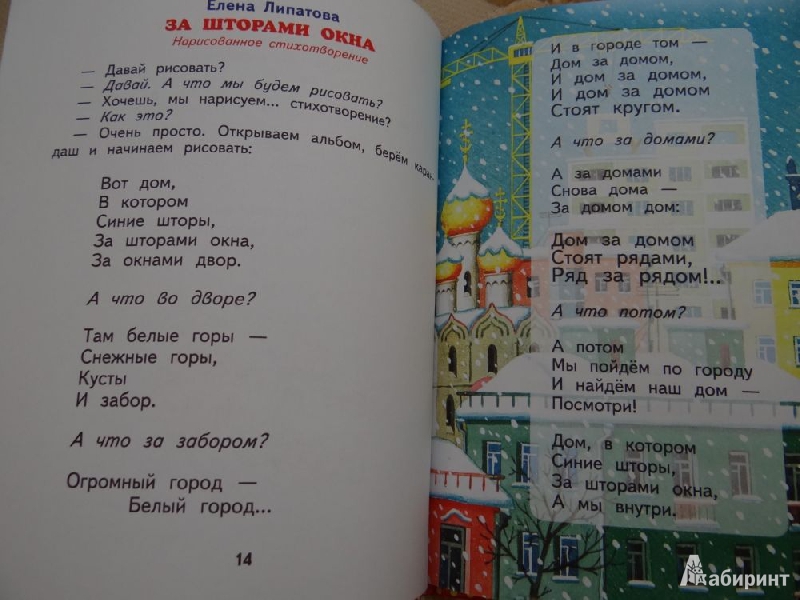 Елена Липатова
ЗА ШТОРАМИ ОКНА
Нарисованное стихотворение
— Давай рисовать?
— Давай. А что мы будем рисовать?
— Хочешь, мы нарисуем... стихотворение?
— Как это?
— Очень просто. Открываем альбом, берём каран-
даш и начинаем рисовать:
Вот дом,
В котором
Синие шторы,
За шторами окна,
За окнами двор.
А что во дворе?
Там белые горы —
Снежные горы,
Кусты
И забор.
А что за забором?
Огромный город —
Белый город...
14
И в городе том —
Дом за домом,
И дом за домом,
И дом за домом
Стоят кругом.
А что за домами?
А за домами
Снова дома —
За домом дом:
Дом за домом
Стоят рядами,
Ряд за рядом!..
А что потом?
А потом
Мы пойдём по городу
И найдём наш дом —
Посмотри!
Дом, в котором
Синие шторы,
За шторами окна,
А мы внутри.
Лабиринт